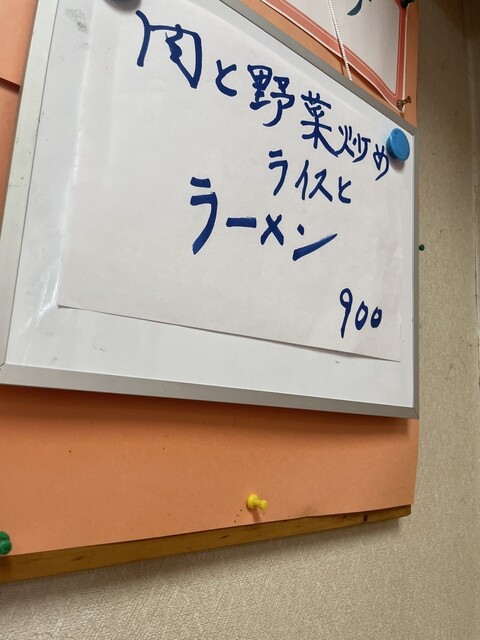 肉と野菜炒め
ライスと
ラーメン
900